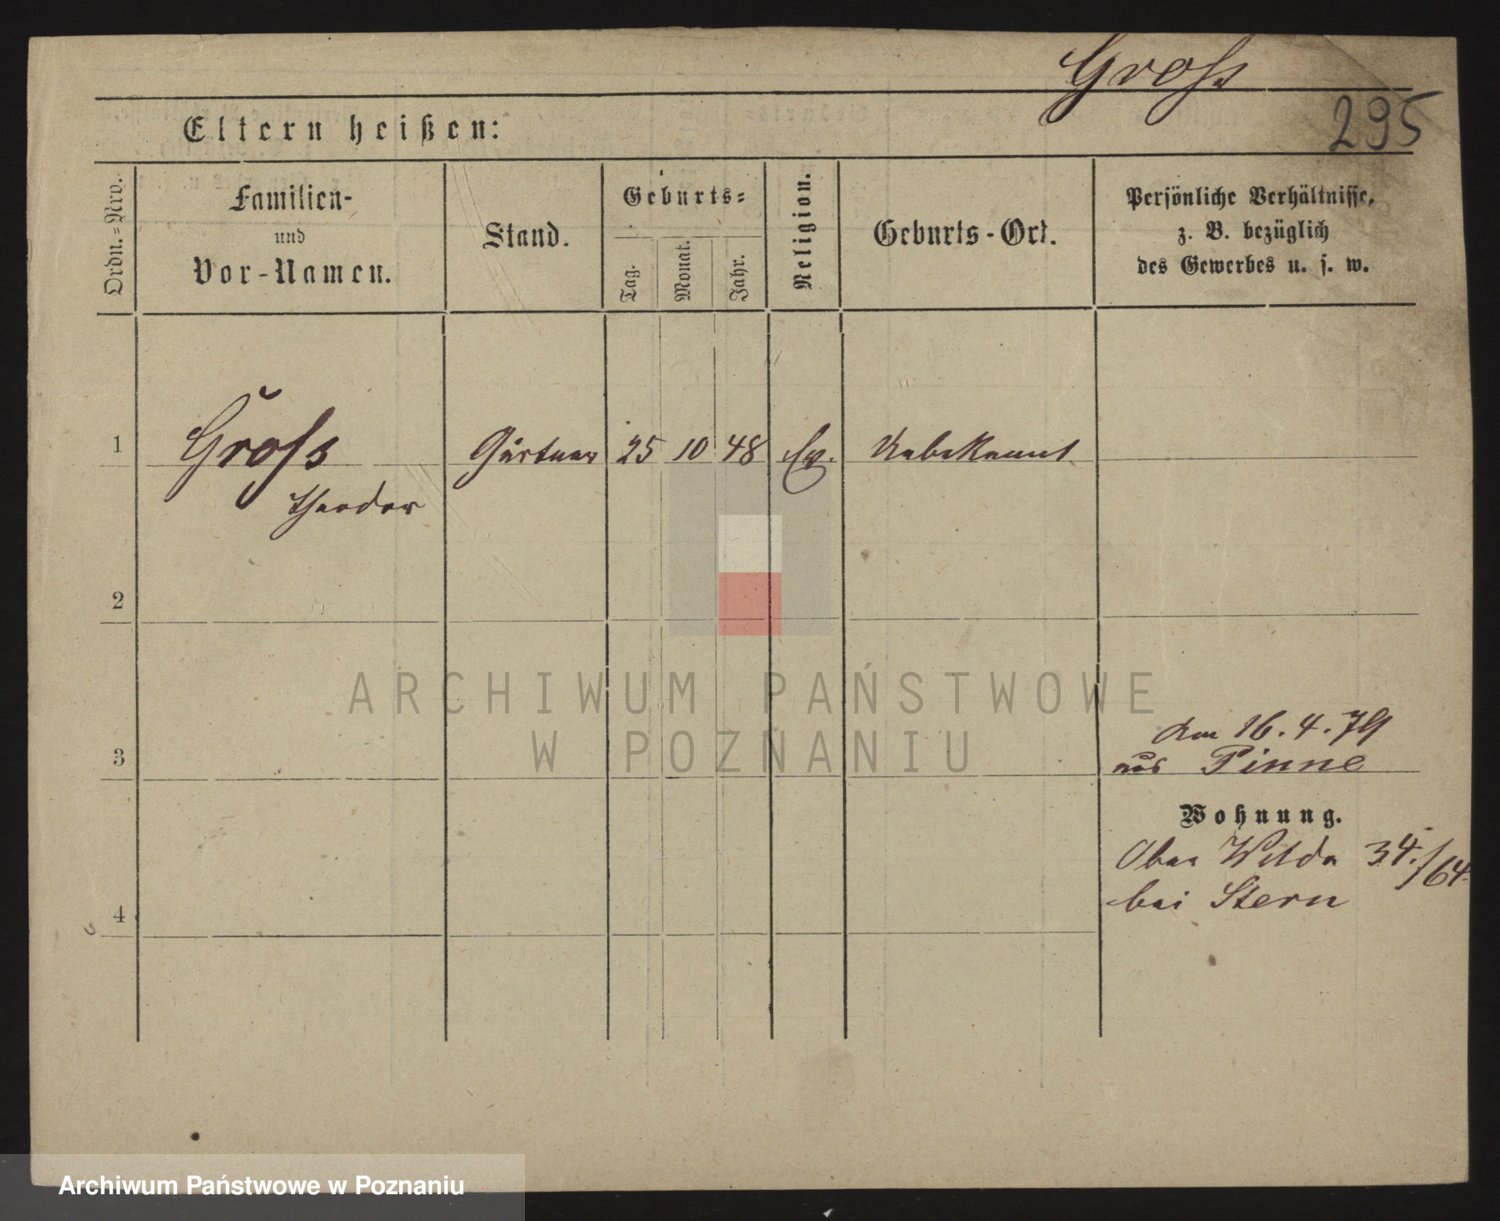 Gross
295
Eltern heißen:
Ordn.=Nro.
Familien-
und
Vor-Namen.
Stand.
Geburts=
Tag.
Monat.
Jahr.
Religion.
Geburts-Ort.
Persönliche Verhältnisse,
z. B. bezüglich
des Gewerbes u. s. w.
1
Gross
Theodor
Gärtner
25
10
48
Ev.
Unbekannt
2
3
am 16. 4. 79
aus Pinne
Wohnung.
Ober Wilda 34./64.
bei Stern
4
ARCHIWUM PAŃSTWOWE
W POZNANIU
Archiwum Państwowe w Poznaniu